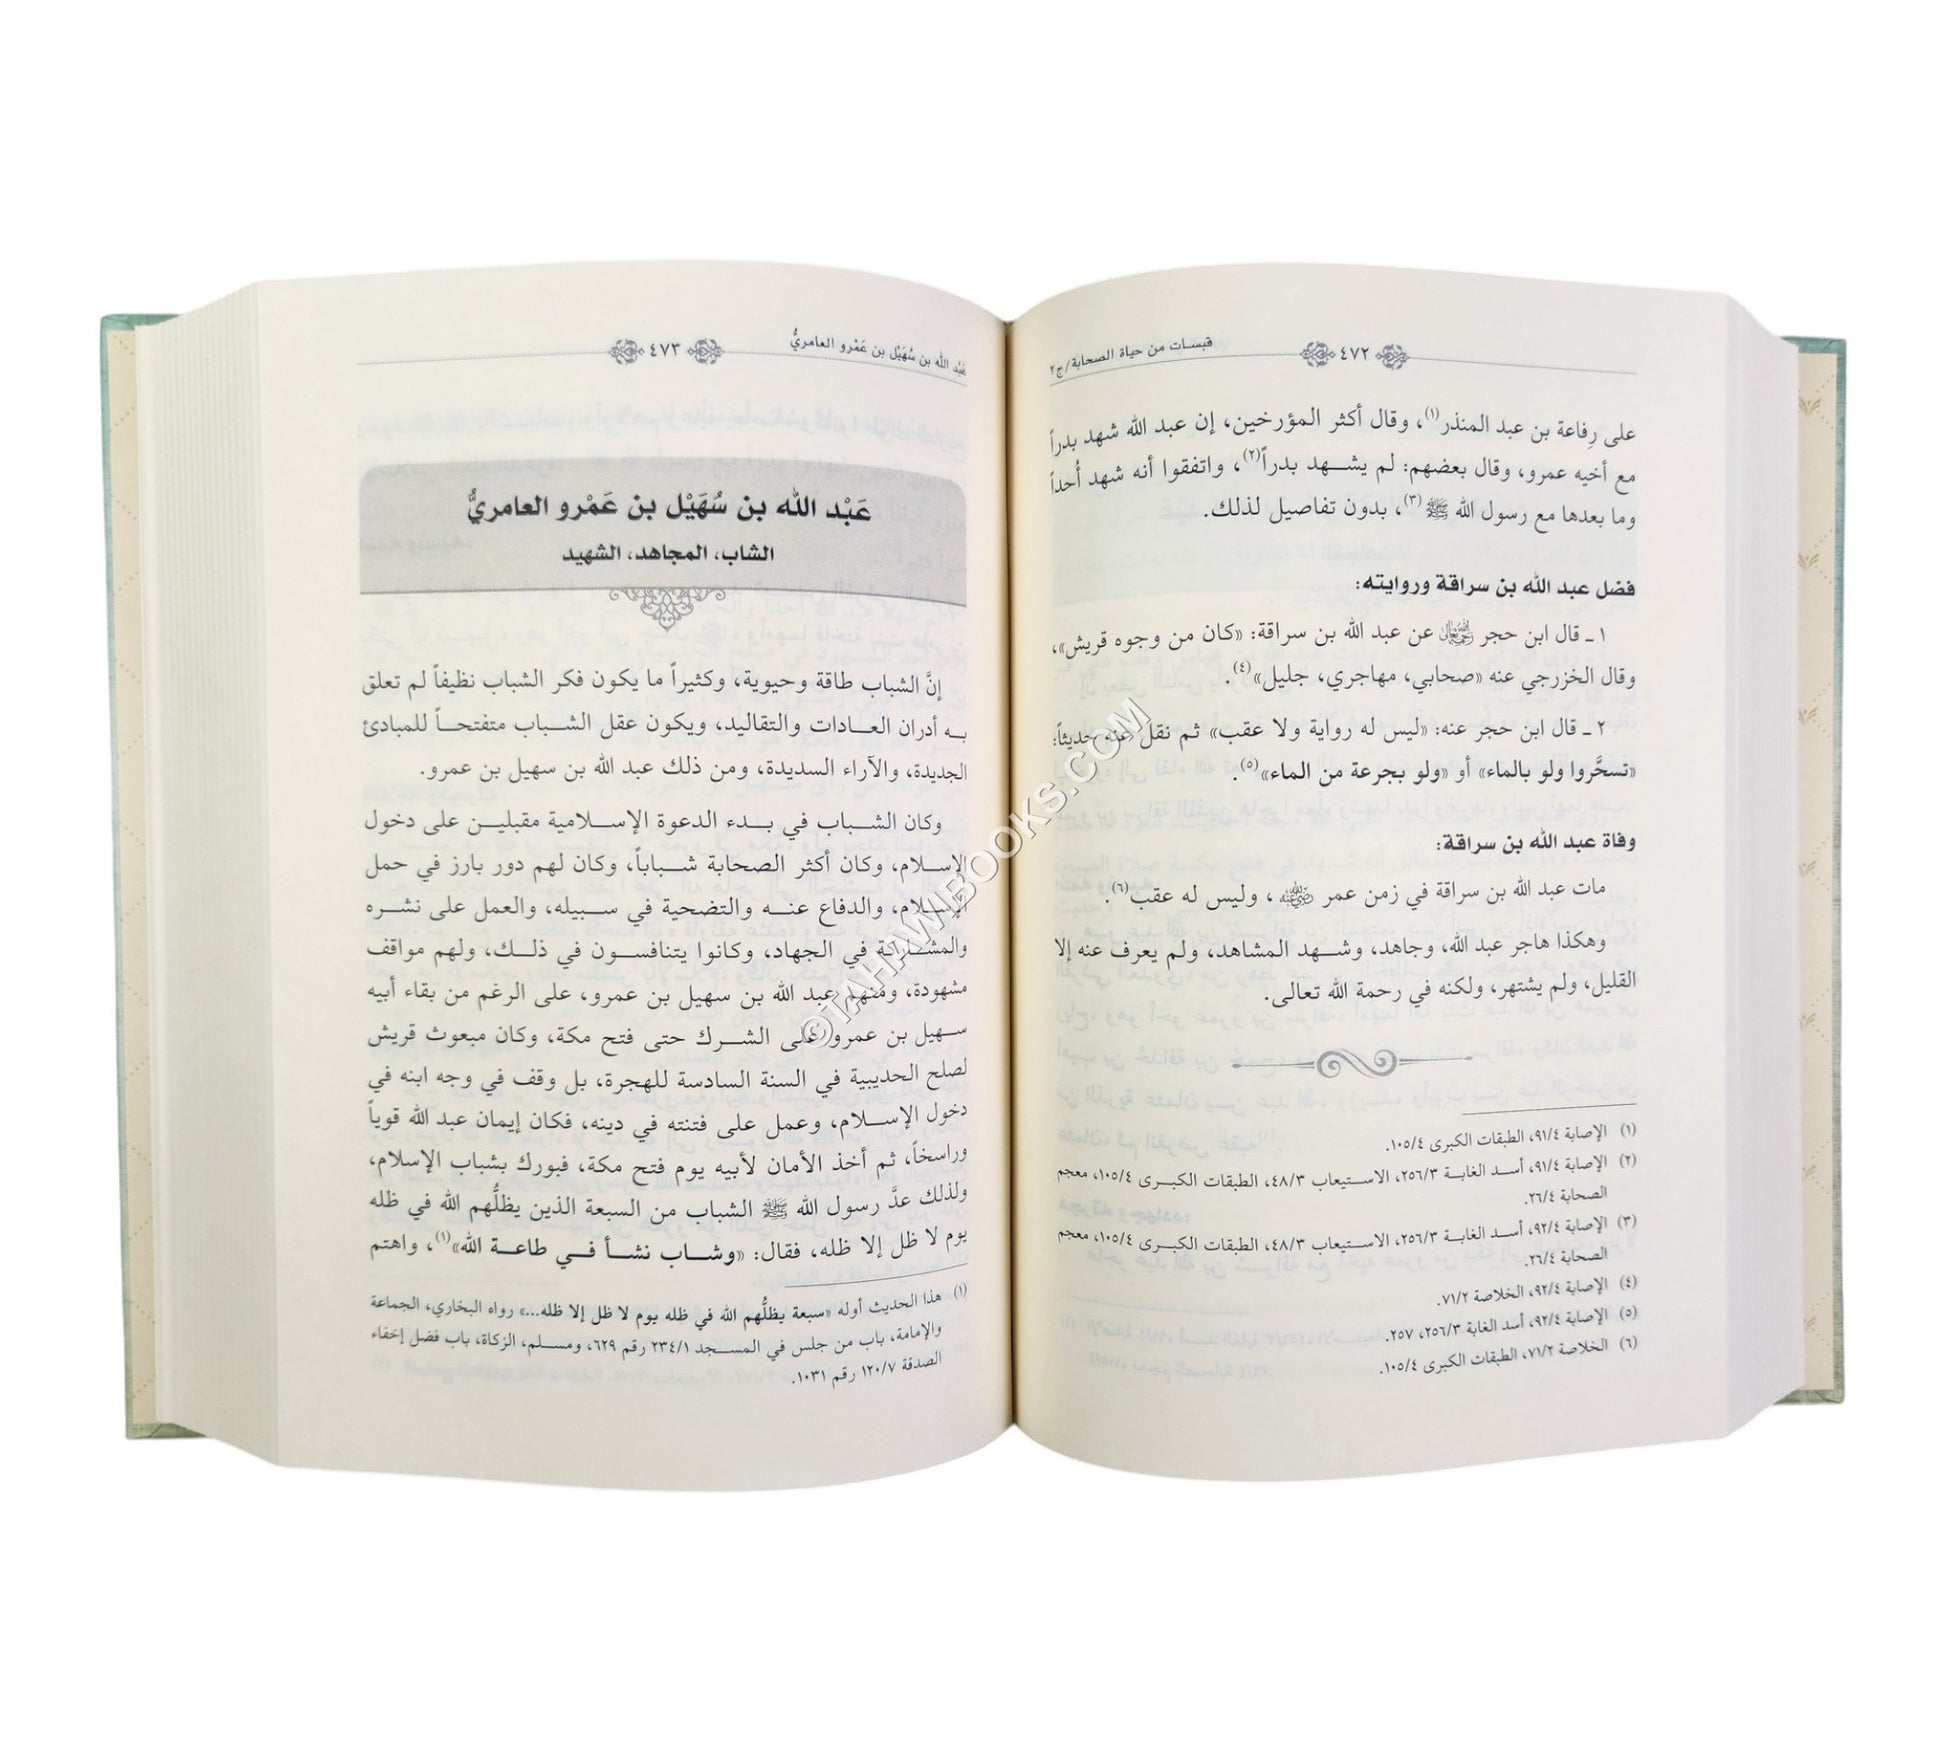 قبسات من حياة الصحابة/ج٢
٤٧٢
على رِفاعة بن عبد المنذر(١)، وقال أكثر المؤرخين، إن عبد الله شهد بدراً
مع أخيه عمرو، وقال بعضهم: لم يشهد بدراً(٢)، واتفقوا أنه شهد أُحداً
وما بعدها مع رسول الله ﷺ(٣)، بدون تفاصيل لذلك.
فضل عبد الله بن سراقة وروايته:
١ ـ قال ابن حجر رحمه الله تعالى عن عبد الله بن سراقة: «كان من وجوه قريش»،
وقال الخزرجي عنه «صحابي، مهاجري، جليل»(٤).
٢ ـ قال ابن حجر عنه: «ليس له رواية ولا عقب» ثم نقل عنه حديثاً:
«تسحَّروا ولو بالماء» أو «ولو بجرعة من الماء»(٥).
وفاة عبد الله بن سراقة:
مات عبد الله بن سراقة في زمن عمر رضي الله عنه، وليس له عقب(٦).
وهكذا هاجر عبد الله، وجاهد، وشهد المشاهد، ولم يعرف عنه إلا
القليل، ولم يشتهر، ولكنه في رحمة الله تعالى.
(١) الإصابة ٩١/٤، الطبقات الكبرى ١٠٥/٤.
(٢) الإصابة ٩١/٤، أسد الغابة ٢٥٦/٣، الاستيعاب ٤٨/٣، الطبقات الكبرى ١٠٥/٤، معجم
الصحابة ٢٦/٤.
(٣) الإصابة ٩٢/٤، أسد الغابة ٢٥٦/٣، الاستيعاب ٤٨/٣، الطبقات الكبرى ١٠٥/٤، معجم
الصحابة ٢٦/٤.
(٤) الإصابة ٩٢/٤، الخلاصة ٧١/٢.
(٥) الإصابة ٩٢/٤، أسد الغابة ٢٥٦/٣، ٢٥٧.
(٦) الخلاصة ٧١/٢، الطبقات الكبرى ١٠٥/٤.
عَبْد الله بن سُهَيْل بن عَمْرو العامريُّ
٤٧٣
عَبْد الله بن سُهَيْل بن عَمْرو العامريُّ
الشاب، المجاهد، الشهيد
إنَّ الشباب طاقة وحيوية، وكثيراً ما يكون فكر الشباب نظيفاً لم تعلق
به أدران العادات والتقاليد، ويكون عقل الشباب متفتحاً للمبادئ
الجديدة، والآراء السديدة، ومن ذلك عبد الله بن سهيل بن عمرو.
وكان الشباب في بدء الدعوة الإسلامية مقبلين على دخول
الإسلام، وكان أكثر الصحابة شباباً، وكان لهم دور بارز في حمل
الإسلام، والدفاع عنه والتضحية في سبيله، والعمل على نشره
والمشاركة في الجهاد، وكانوا يتنافسون في ذلك، ولهم مواقف
مشهودة، ومنهم عبد الله بن سهيل بن عمرو، على الرغم من بقاء أبيه
سهيل بن عمرو على الشرك حتى فتح مكة، وكان مبعوث قريش
لصلح الحديبية في السنة السادسة للهجرة، بل وقف في وجه ابنه في
دخول الإسلام، وعمل على فتنته في دينه، فكان إيمان عبد الله قوياً
وراسخاً، ثم أخذ الأمان لأبيه يوم فتح مكة، فبورك بشباب الإسلام،
ولذلك عدَّ رسول الله ﷺ الشباب من السبعة الذين يظلُّهم الله في ظله
يوم لا ظل إلا ظله، فقال: «وشاب نشأ في طاعة الله»(١)، واهتم
(١) هذا الحديث أوله «سبعة يظلُّهم الله في ظله يوم لا ظل إلا ظله...» رواه البخاري، الجماعة
والإمامة، باب من جلس في المسجد ٢٣٤/١ رقم ٦٢٩، ومسلم، الزكاة، باب فضل إخفاء
الصدقة ١٢٠/٧ رقم ١٠٣١.
©TAHAWIBOOKS.COM